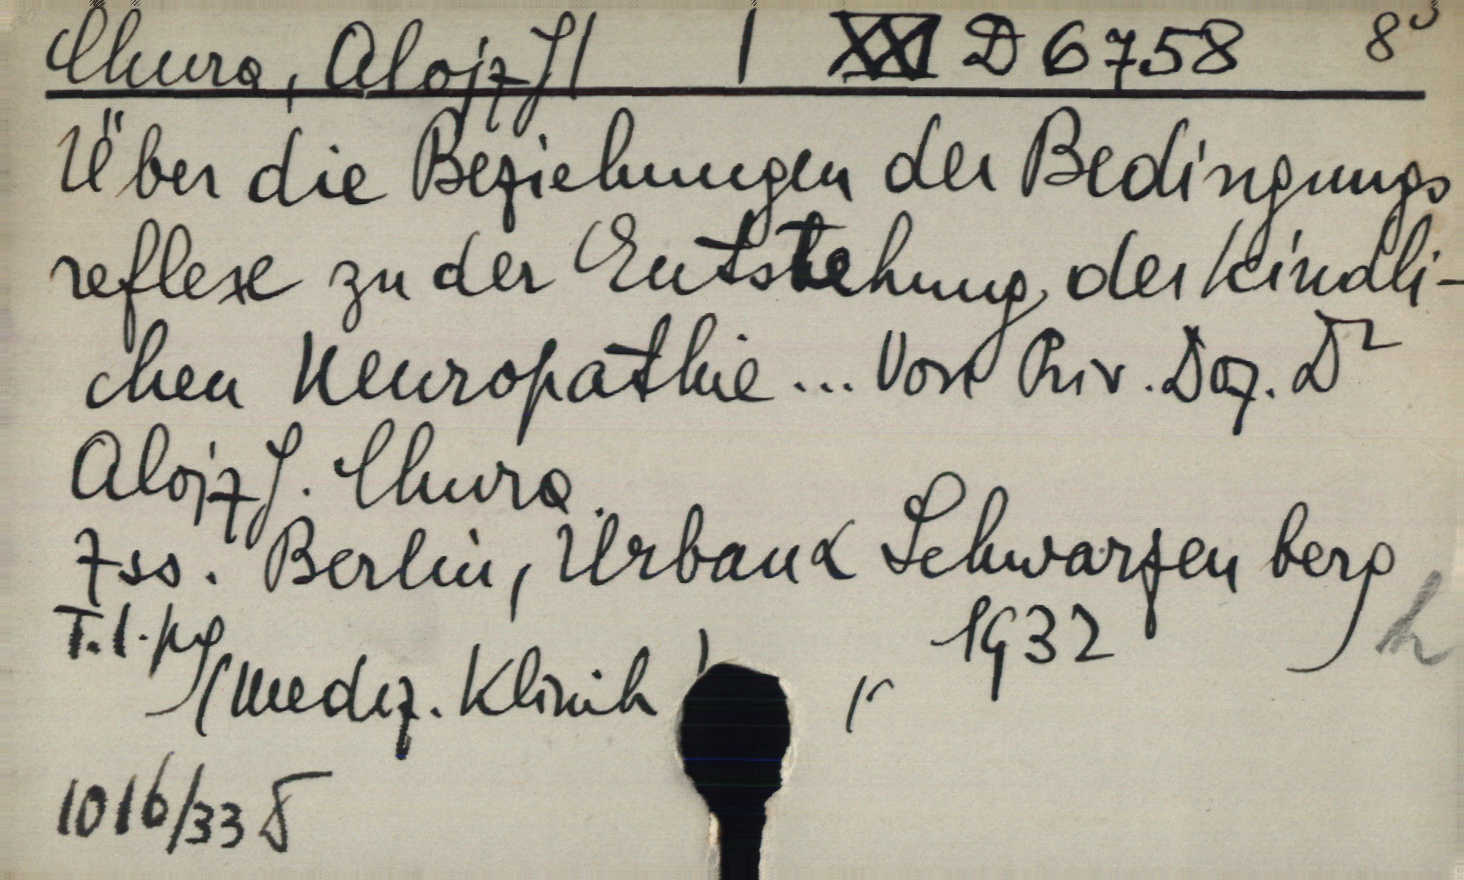 Chura, Alojz J| | XXI D 6758 8°
Über die Beziehungen der Bedingungs
reflexe zu der Entstehung der kindli-
chen Neuropathie ... Von Priv. Doz. Dr
Alojz J. Chura.
7ss. Berlin, Urban & Schwarzenberg
T.l.pg 1932 h
(Mediz. Klinik)
1016/33